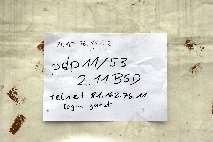 pdp11/53
2.11 BSD
telnet 81.162.76.11
login guest